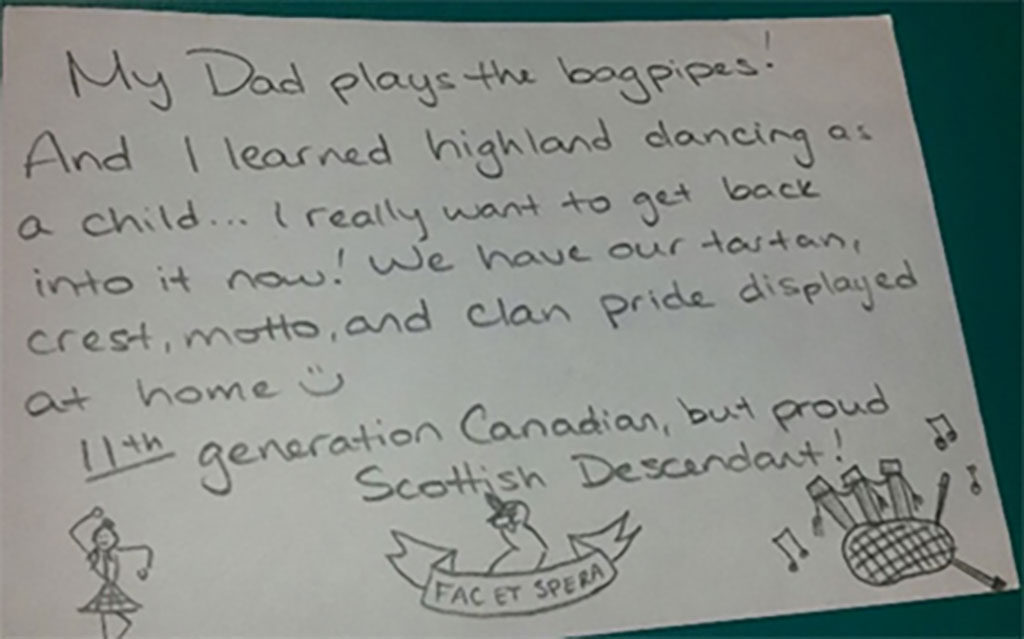 My Dad plays the bagpipes!
And I learned highland dancing as
a child... I really want to get back
into it now! We have our tartan,
crest, motto, and clan pride displayed
at home :)
11th generation Canadian, but proud
Scottish Descendant!
FAC ET SPERA